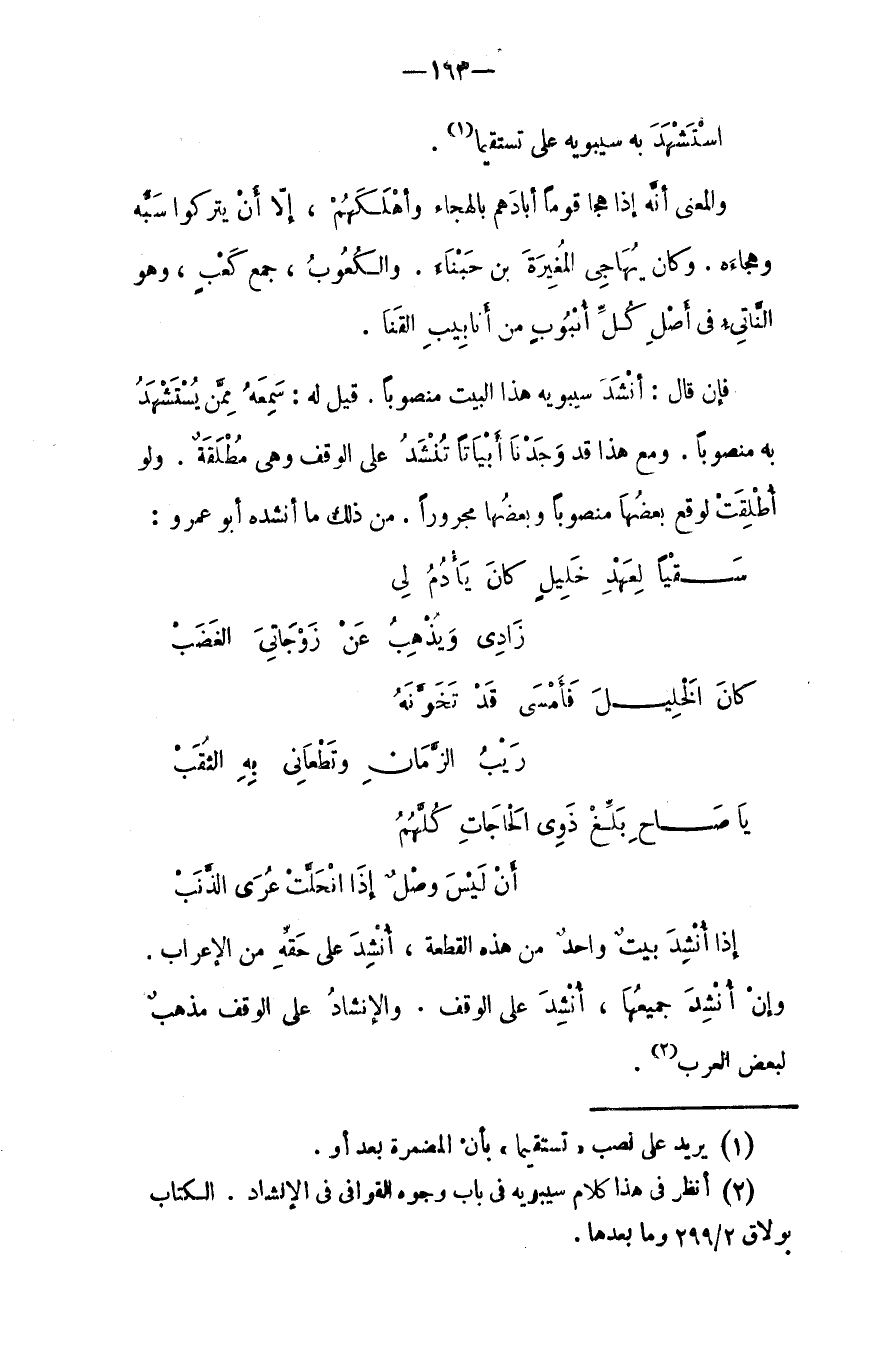 —١٦٣—
اسْتَشْهَدَ به سيبويه على تستقيما(١) .
والمعنى أنَّه إذا هجا قوماً أبادَهم بالهجاء وأهْلَكَهُمْ ، إلّا أَنْ يتركوا سَبَّه
وهجاءَه . وكان يُهَاجِى المُغِيرَةَ بن حَبْنَاءَ . والكُعُوبُ ، جمع كَعْبٍ ، وهو
النَّاتِىء فى أَصْلِ كُلِّ أُنْبُوبٍ من أَنابِيبِ القَنا .
فإن قال : أنْشَدَ سيبويه هذا البيت منصوباً . قيل له : سَمِعَهُ مِمَّن يُسْتَشْهَدُ
به منصوباً . ومع هذا قد وَجَدْنَا أَبْيَاتاً تُنْشَدُ على الوقف وهى مُطْلَقَةٌ . ولو
أُطْلِقَتْ لوقع بعضُهاَ منصوباً وبعضُها مجروراً . من ذلك ما أنشده أبو عمرو :
سَــقْياً لِعَهْدِ خَلِيلٍ كانَ يَأْدُمُ لِى
زَادِى وَيُذْهِبُ عَنْ زَوْجَاتِىَ الغَضَبْ
كانَ الَخْلِيــلَ فَأَمْسَى قَدْ تَخَوَّنَهُ
رَيْبُ الزَّمَانِ وتَطْعَانِى بِهِ الثُقَبْ
يَا صَــاحِ بَلِّغْ ذَوِى الَحْاجَاتِ كُلَّهُمُ
أَنْ لَيْسَ وصْلٌ إذَا انْحَلَّتْ عُرَى الذَّنَبْ
إذا أُنْشِدَ بيتٌ واحدٌ من هذه القطعة ، أُنْشِدَ على حَقِّهِ من الإعراب .
وإنْ أُنْشِدَ جميعُهَا ، أُنْشِدَ على الوقف . والإنشادُ على الوقف مذهبٌ
لبعض العرب(٢) .
(١) يريد على نصب « تستقيما » بأنْ المضمرة بعد أو .
(٢) أنظر فى هذا كلام سيبويه فى باب وجوه القوافى فى الإنشاد . الكتاب
بولاق ٢٩٩/٢ وما بعدها .